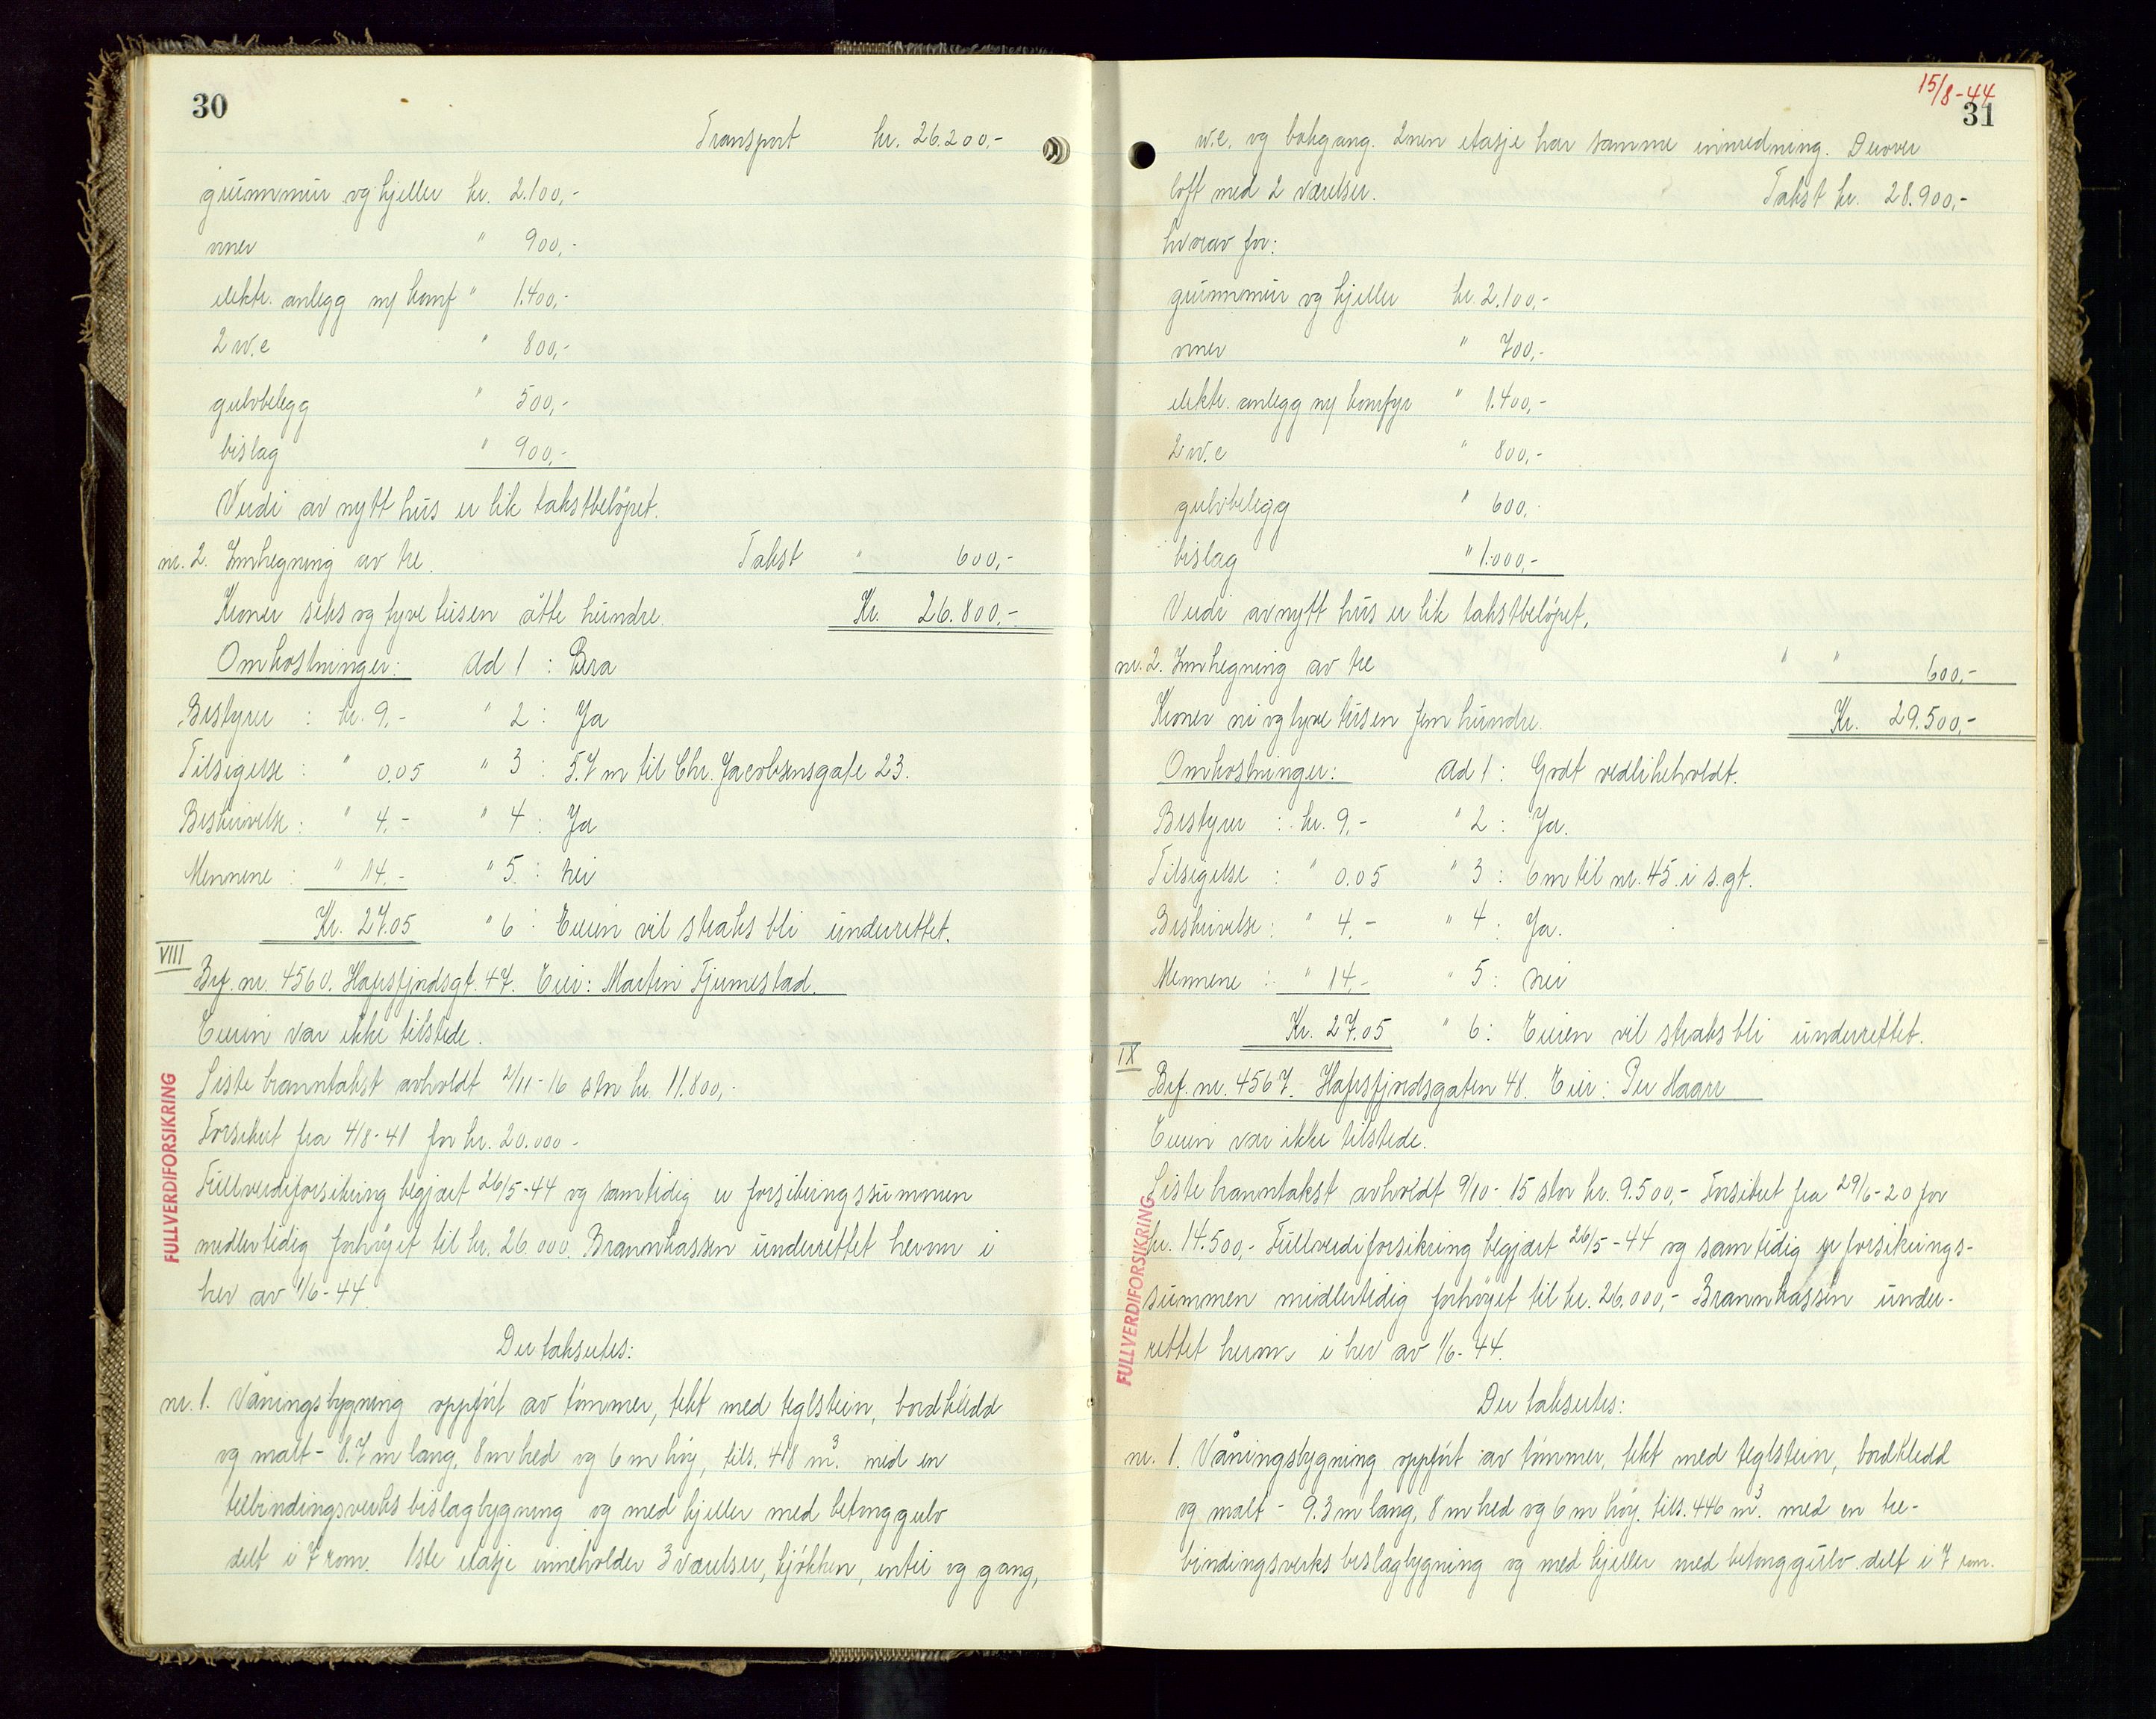 30
Transport kr. 26.200,-
grunnmur og kjeller kr. 2.100,-
ovner " 900,-
elektr. anlegg m/ komf " 1.400,-
2 w.c " 800,-
gulvbelegg " 500,-
bislag " 900,-
Verdi av nytt hus er lik takstbeløpet.
nr. 2. Innhegning av tre. Takst " 600,-
Kroner seks og tyve tusen åtte hundre. Kr. 26.800,-
Omkostninger: Ad 1 : Bra
Bestyrer : kr. 9,- " 2 : Ja
Tilsigelse : " 0.05 " 3 : 5.7 m til Chr. Jacobsensgate 23.
Beskrivelse : " 4,- " 4 : Ja
Mennene : " 14,- " 5 : Nei
Kr. 27.05 " 6 : Eieren vil straks bli underrettet.
VIII
Brf. nr. 4560. Hafrsfjordsgt. 47. Eier: Martin Tjemestad.
Eieren var ikke tilstede.
Siste branntakst avholdt 2/11-16 stor kr. 11.800,-
Forsikret fra 4/8-41 for kr. 20.000 -
Fullverdiforsikring begjært 26/5-44 og samtidig er forsikringssummen
midlertidig forhøyet til kr. 26.000. Brannkassen underrettet herom i
brev av 1/6-44.
FULLVERDIFORSIKRING
Der takseres:
nr. 1. Våningsbygning oppført av tømmer, tekt med teglstein, bordkledd
og malt - 8.7 m lang, 8 m bred og 6 m høy, tils. 418 m³. med en
trebindingsverks bislagbygning og med kjeller med betonggulv
delt i 7 rom. 1ste etasje inneholder 3 værelser, kjøkken, entré og gang,
15/8-44
31
w.c. og bakgang. 2nen etasje har samme innredning. Derover
loft med 2 værelser. Takst kr. 28.900,-
hvorav for:
grunnmur og kjeller kr. 2.100,-
ovner " 700,-
elektr. anlegg m/ komfyr " 1.400,-
2 w.c " 800,-
gulvbelegg " 600,-
bislag " 1.000,-
Verdi av nytt hus er lik takstbeløpet.
nr. 2. Innhegning av tre " " 600,-
Kroner ni og tyve tusen fem hundre. Kr. 29.500,-
Omkostninger: Ad 1 : Godt vedlikeholdt.
Bestyrer : kr. 9,- " 2 : Ja.
Tilsigelse : " 0.05 " 3 : 6 m til nr. 45 i s.gt.
Beskrivelse : " 4,- " 4 : Ja.
Mennene : " 14,- " 5 : Nei
Kr. 27.05 " 6 : Eieren vil straks bli underrettet.
IX
Brf. nr. 4567. Hafrsfjordsgaten 48. Eier: Per Haarr
Eieren var ikke tilstede.
Siste branntakst avholdt 9/10-15 stor kr. 9.500,- Forsikret fra 29/6-20 for
kr. 14.500,- Fullverdiforsikring begjært 26/5-44 og samtidig er forsikrings-
summen midlertidig forhøyet til kr. 26.000,- Brannkassen under-
rettet herom i brev av 1/6-44.
FULLVERDIFORSIKRING
Der takseres:
nr. 1. Våningsbygning oppført av tømmer, tekt med teglstein, bordkledd
og malt - 9.3 m lang, 8 m bred og 6 m høy. tils. 446 m³. med en tre-
bindingsverks bislagbygning og med kjeller med betonggulv delt i 7 rom.